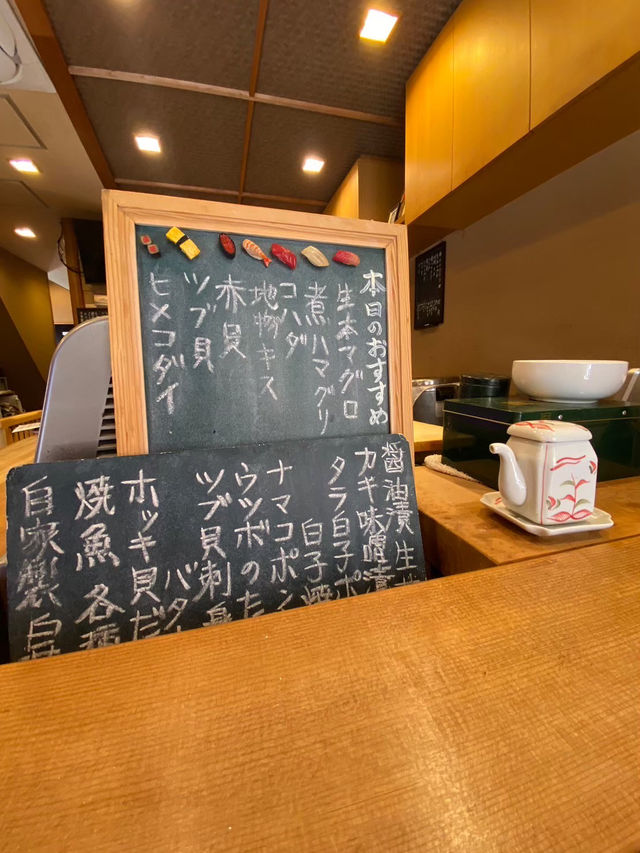 本日のおすすめ
生本マグロ
煮ハマグリ
コハダ
地物キス
赤貝
ツブ貝
ヒメコダイ
醤油漬 生
カキ味噌漬
タラ白子ポ
白子
ナマコポン
ウツボのた
ツブ貝刺身
バター
ホッキ貝だ
焼魚 各種
自家製